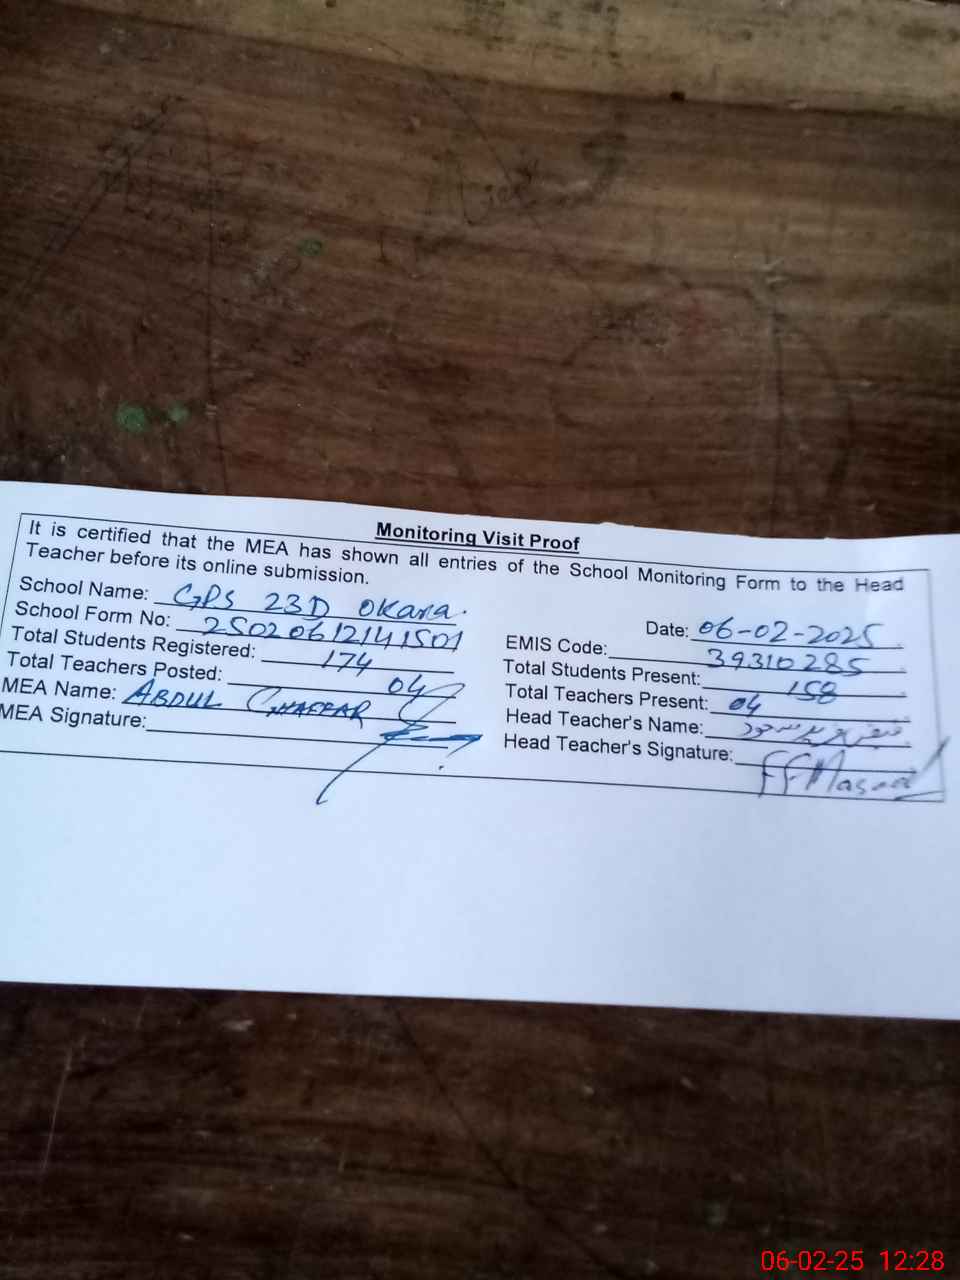 Monitoring Visit Proof
It is certified that the MEA has shown all entries of the School Monitoring Form to the Head
Teacher before its online submission.
School Name: GPS 23D Okara.
Date: 06-02-2025
School Form No: 25020612141501
EMIS Code: 39310285
Total Students Registered: 174
Total Students Present: 158
Total Teachers Posted: 04
Total Teachers Present: 04
MEA Name: ABDUL GHAFFAR
Head Teacher's Name:
MEA Signature:
Head Teacher's Signature: FFMasood
06-02-25 12:28